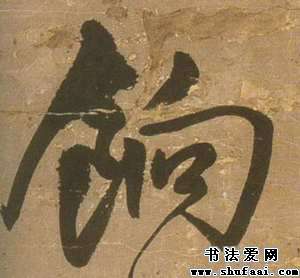 餉
书法爱网
www.shufaai.com